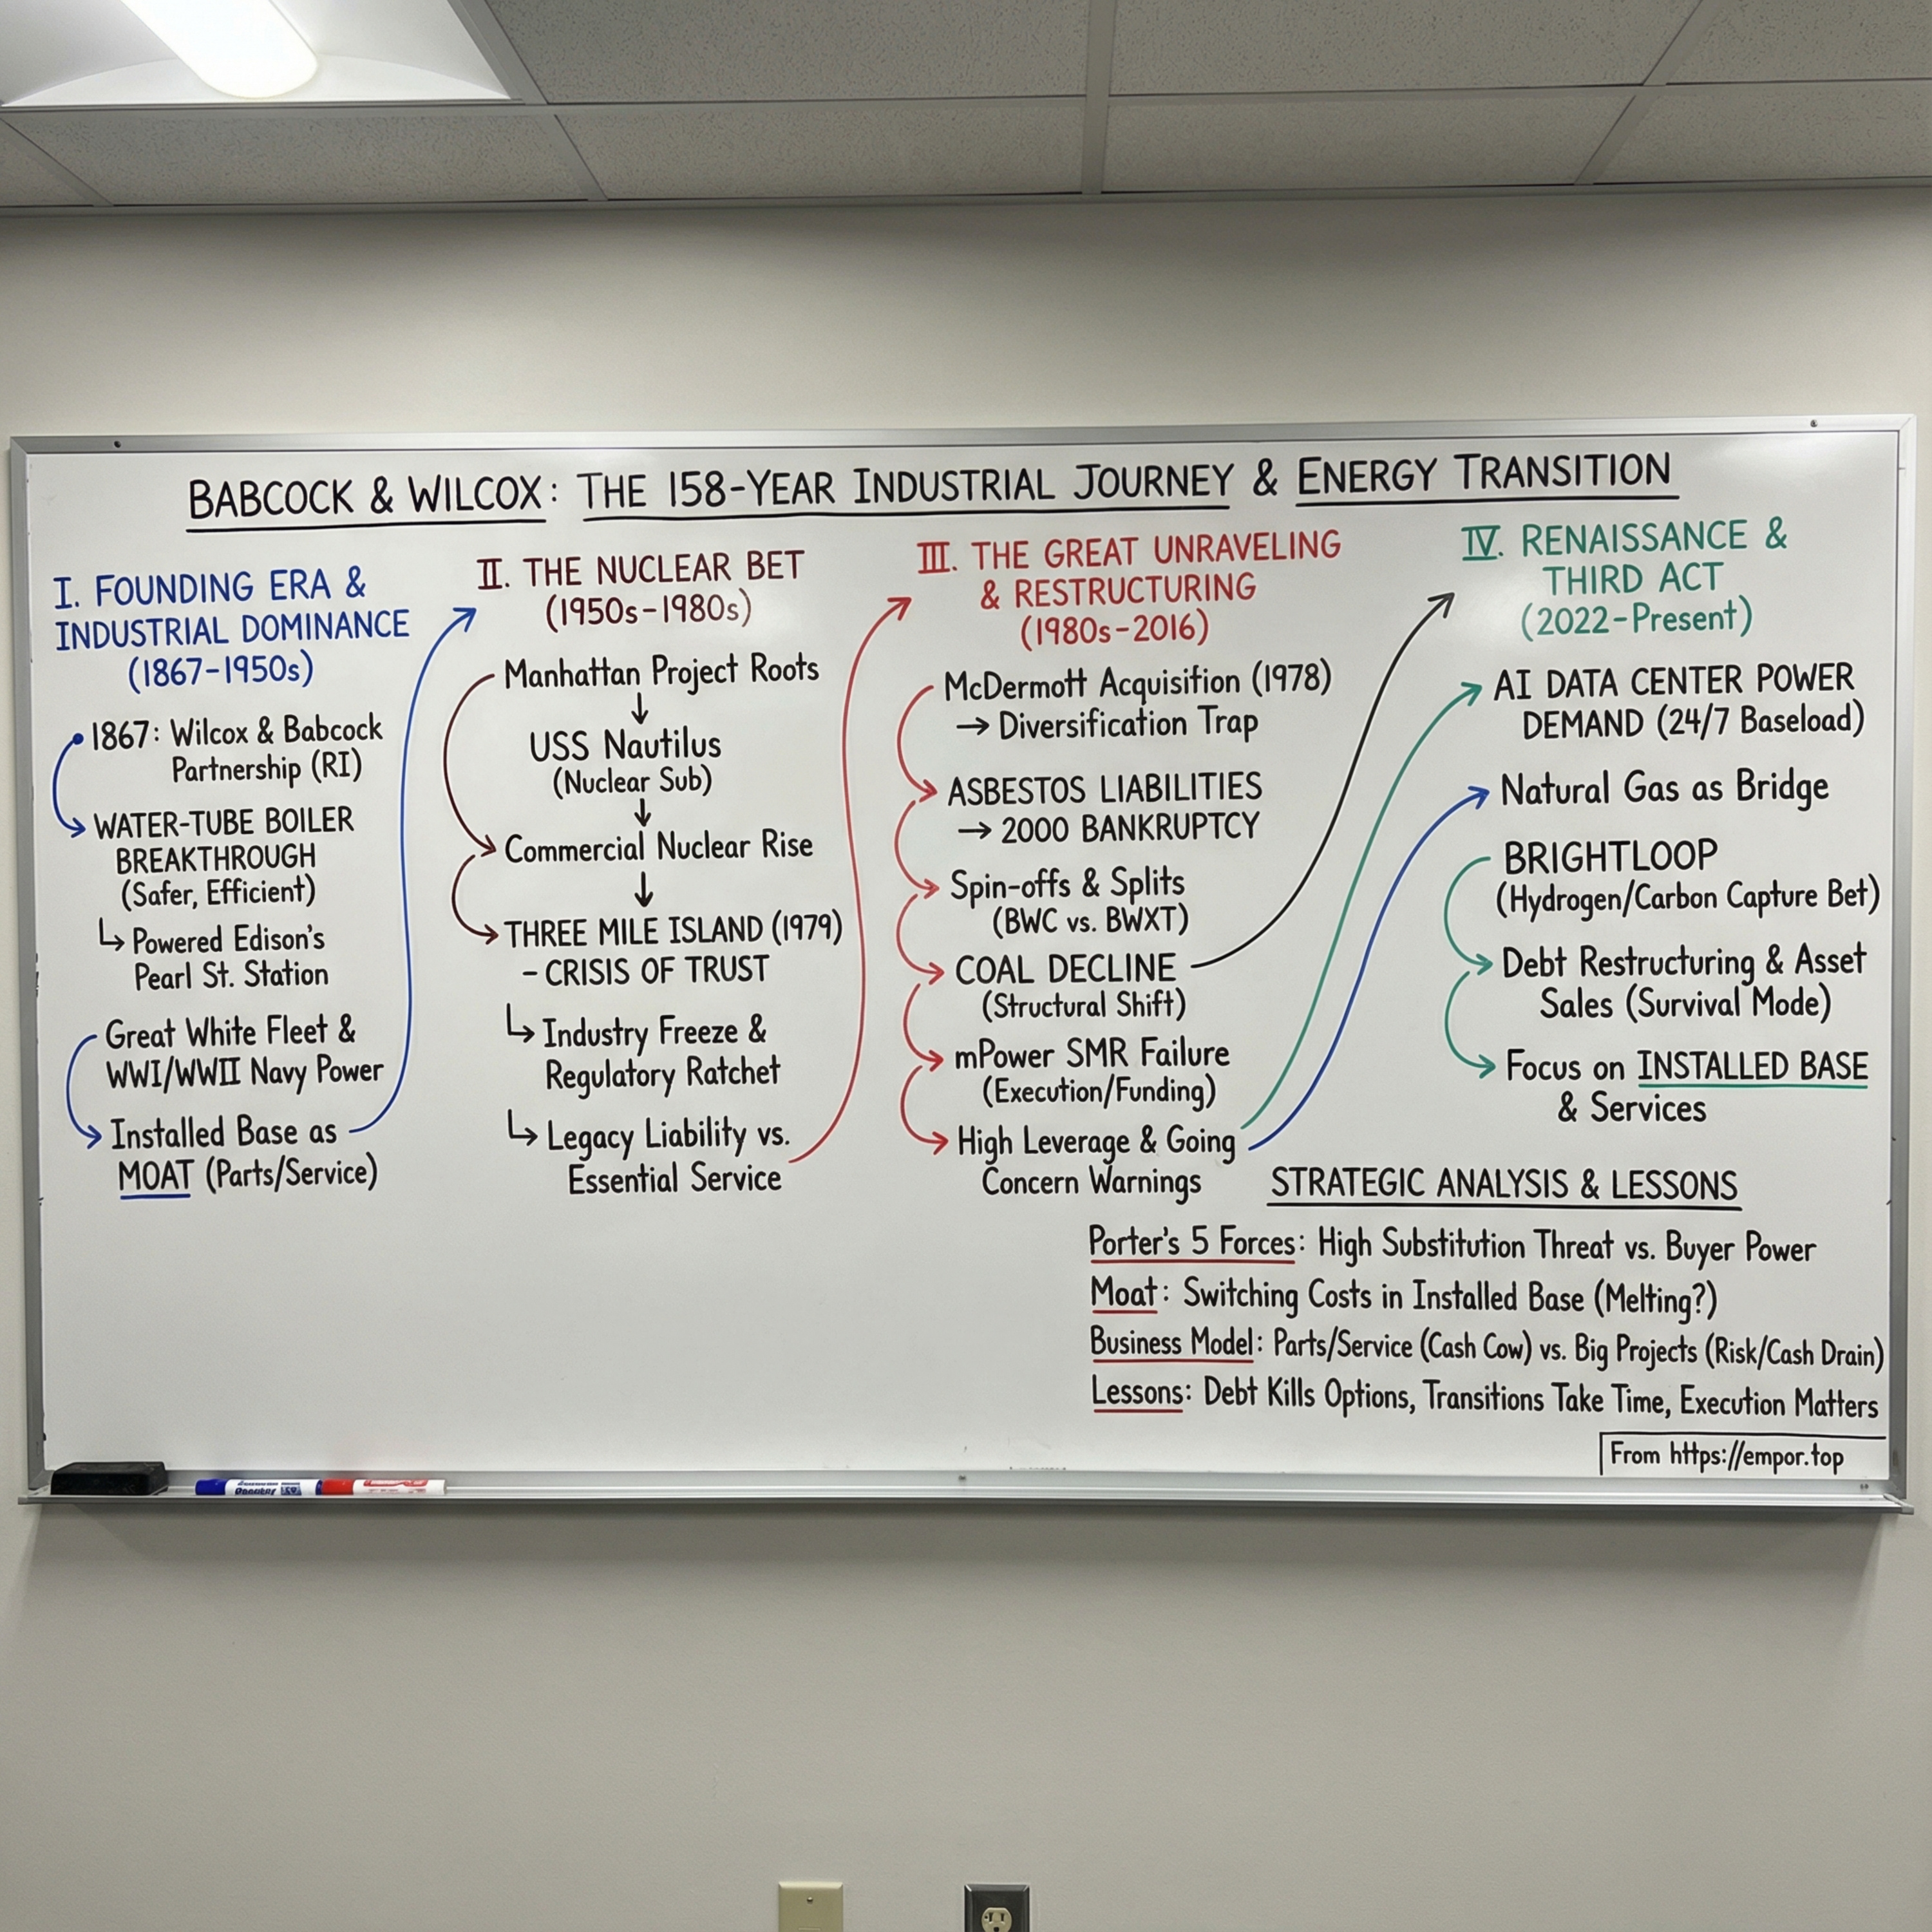 BABCOCK & WILCOX: THE 158-YEAR INDUSTRIAL JOURNEY & ENERGY TRANSITION
I. FOUNDING ERA &
INDUSTRIAL DOMINANCE
(1867-1950s)
1867: Wilcox & Babcock
Partnership (RI)
WATER-TUBE BOILER
BREAKTHROUGH
(Safer, Efficient)
↳ Powered Edison's
Pearl St. Station
Great White Fleet &
WWI/WWII Navy Power
Installed Base as
MOAT (Parts/Service)
II. THE NUCLEAR BET
(1950s-1980s)
Manhattan Project Roots
↓
USS Nautilus
(Nuclear Sub)
↓
Commercial Nuclear Rise
↓
THREE MILE ISLAND (1979)
- CRISIS OF TRUST
↳ Industry Freeze &
Regulatory Ratchet
↳ Legacy Liability vs.
Essential Service
III. THE GREAT UNRAVELING
& RESTRUCTURING
(1980s-2016)
McDermott Acquisifion (1978)
→ Diversification Trap
ASBESTOS LIABILITIES
→ 2000 BANKRUPTCY
Spin-offs & Splits
(BWC vs. BWXT)
COAL DECLINE
(Structural Shift)
mPower SMR Failure
(Execution/Funding)
High Leverage & Going
Concern Warnings
IV. RENAISSANCE &
THIRD ACT
(2022-Present)
AI DATA CENTER POWER
DEMAND (24/7 Baseload)
Natural Gas as Bridge
BRIGHTLOOP
(Hydrogen/Carbon Capture Bet)
Debt Restructuring & Asset
Sales (Survival Mode)
Focus on INSTALLED BASE
& Services
STRATEGIC ANALYSIS & LESSONS
Porter's 5 Forces: High Substitution Threat vs. Buyer Power
Moat: Switching Costs in Installed Base (Melting?)
Business Model: Parts/Service (Cash Cow) vs. Big Projects (Risk/Cash Drain)
Lessons: Debt Kills Options, Transitions Take Time, Execution Matters
From https://empor.top